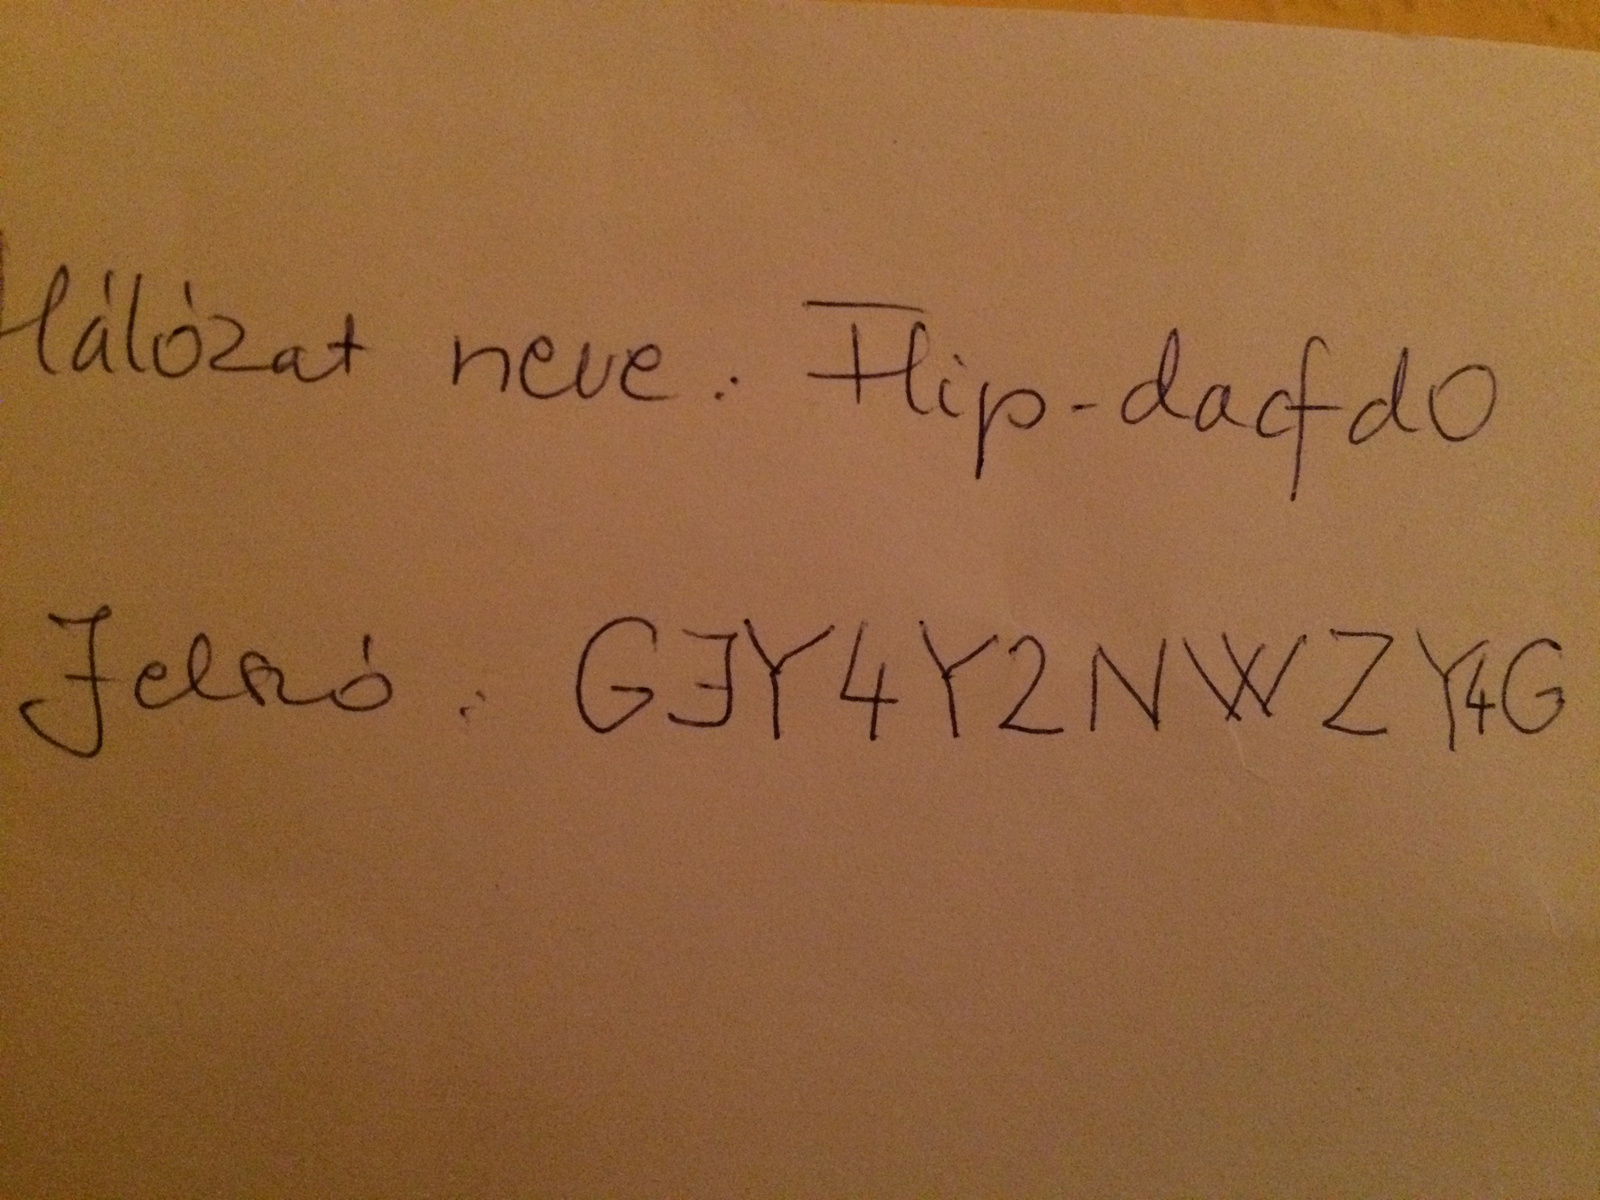 Hálózat neve: Flip-dacfd0
Jelszó: G3Y4Y2NWZY4G